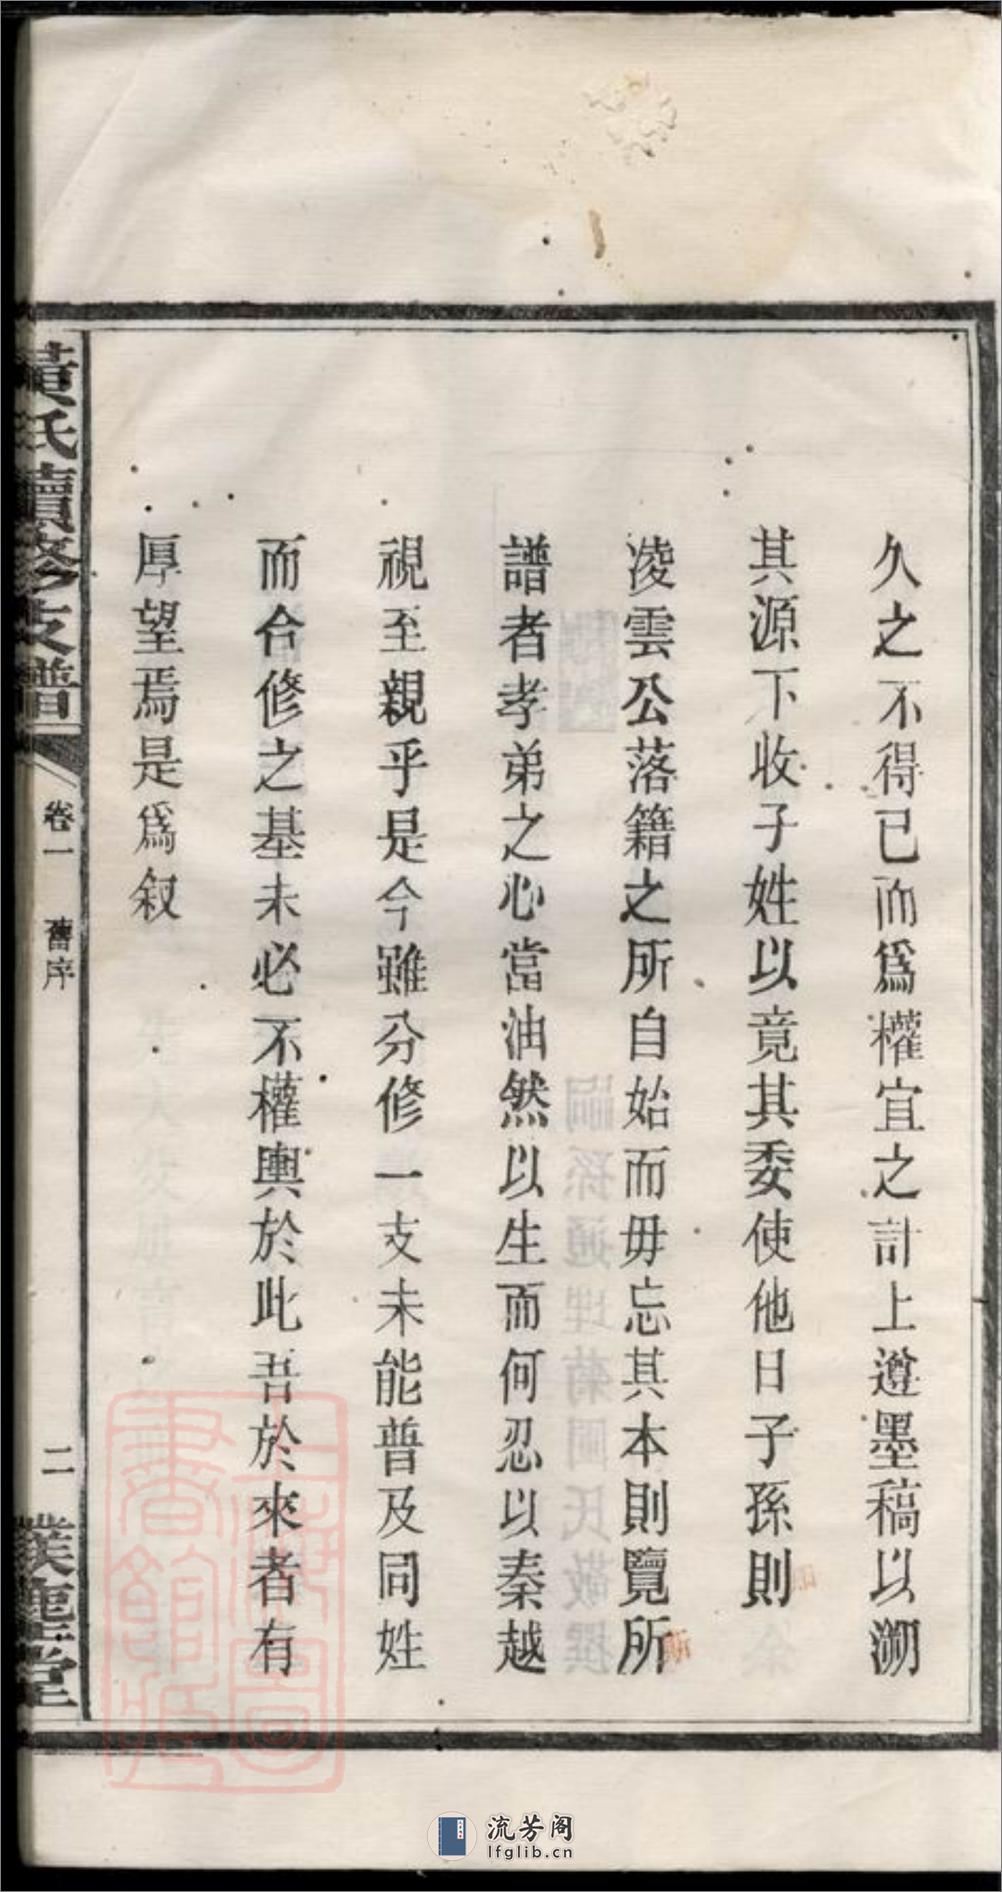 久之不得已而爲權宜之計上遵墨稿以溯
其源下收子姓以竟其委使他日子孫則
凌雲公落籍之所自始而毋忘其本則覽所
譜者孝弟之心當油然以生而何忍以秦越
視至親乎是今雖分修一支未能普及同姓
而合修之基未必不權輿於此吾於來者有
厚望焉是爲叙
黃氏續修支譜
卷一 舊序
二
上海圖書館藏
流芳阁
lfglib.cn